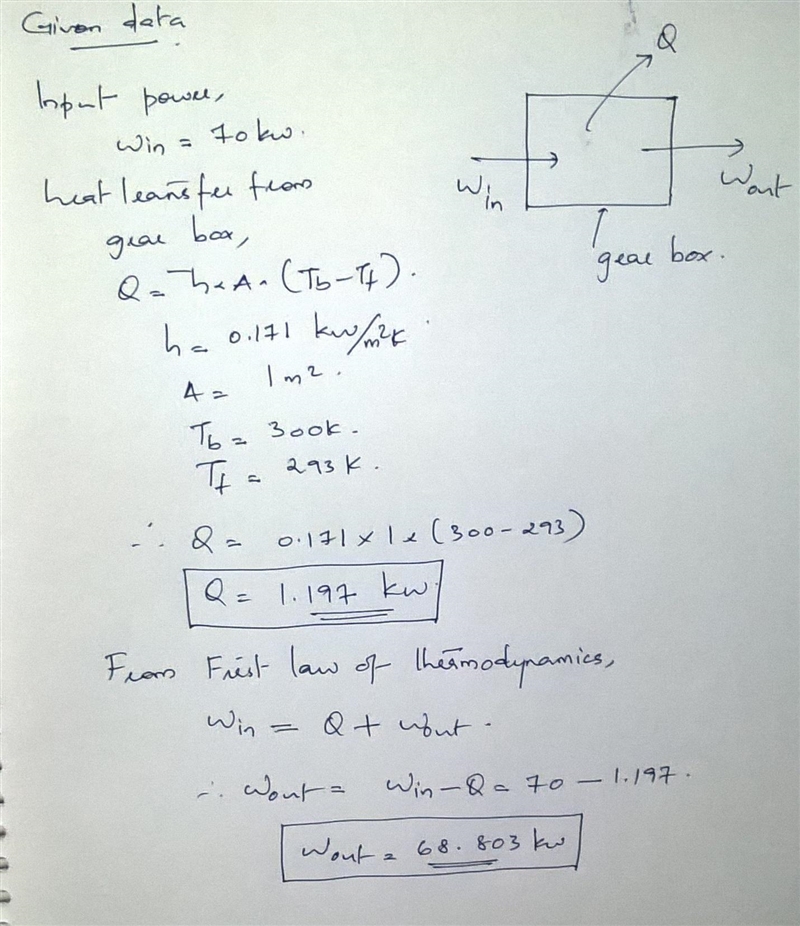 Given data
Input power,
Win = 70 kw.
heat transfer from
gear box,
Q = h × A × (Tb - Tf).
h = 0.171 kw/m²K
A = 1 m².
Tb = 300k.
Tf = 293 K.
∴ Q = 0.171 × 1 × (300 - 293)
Q = 1.197 kw.
From First law of thermodynamics,
Win = Q + Wout.
∴ Wout = Win - Q = 70 - 1.197.
Wout = 68.803 kw
Q
Win
Wout
gear box.